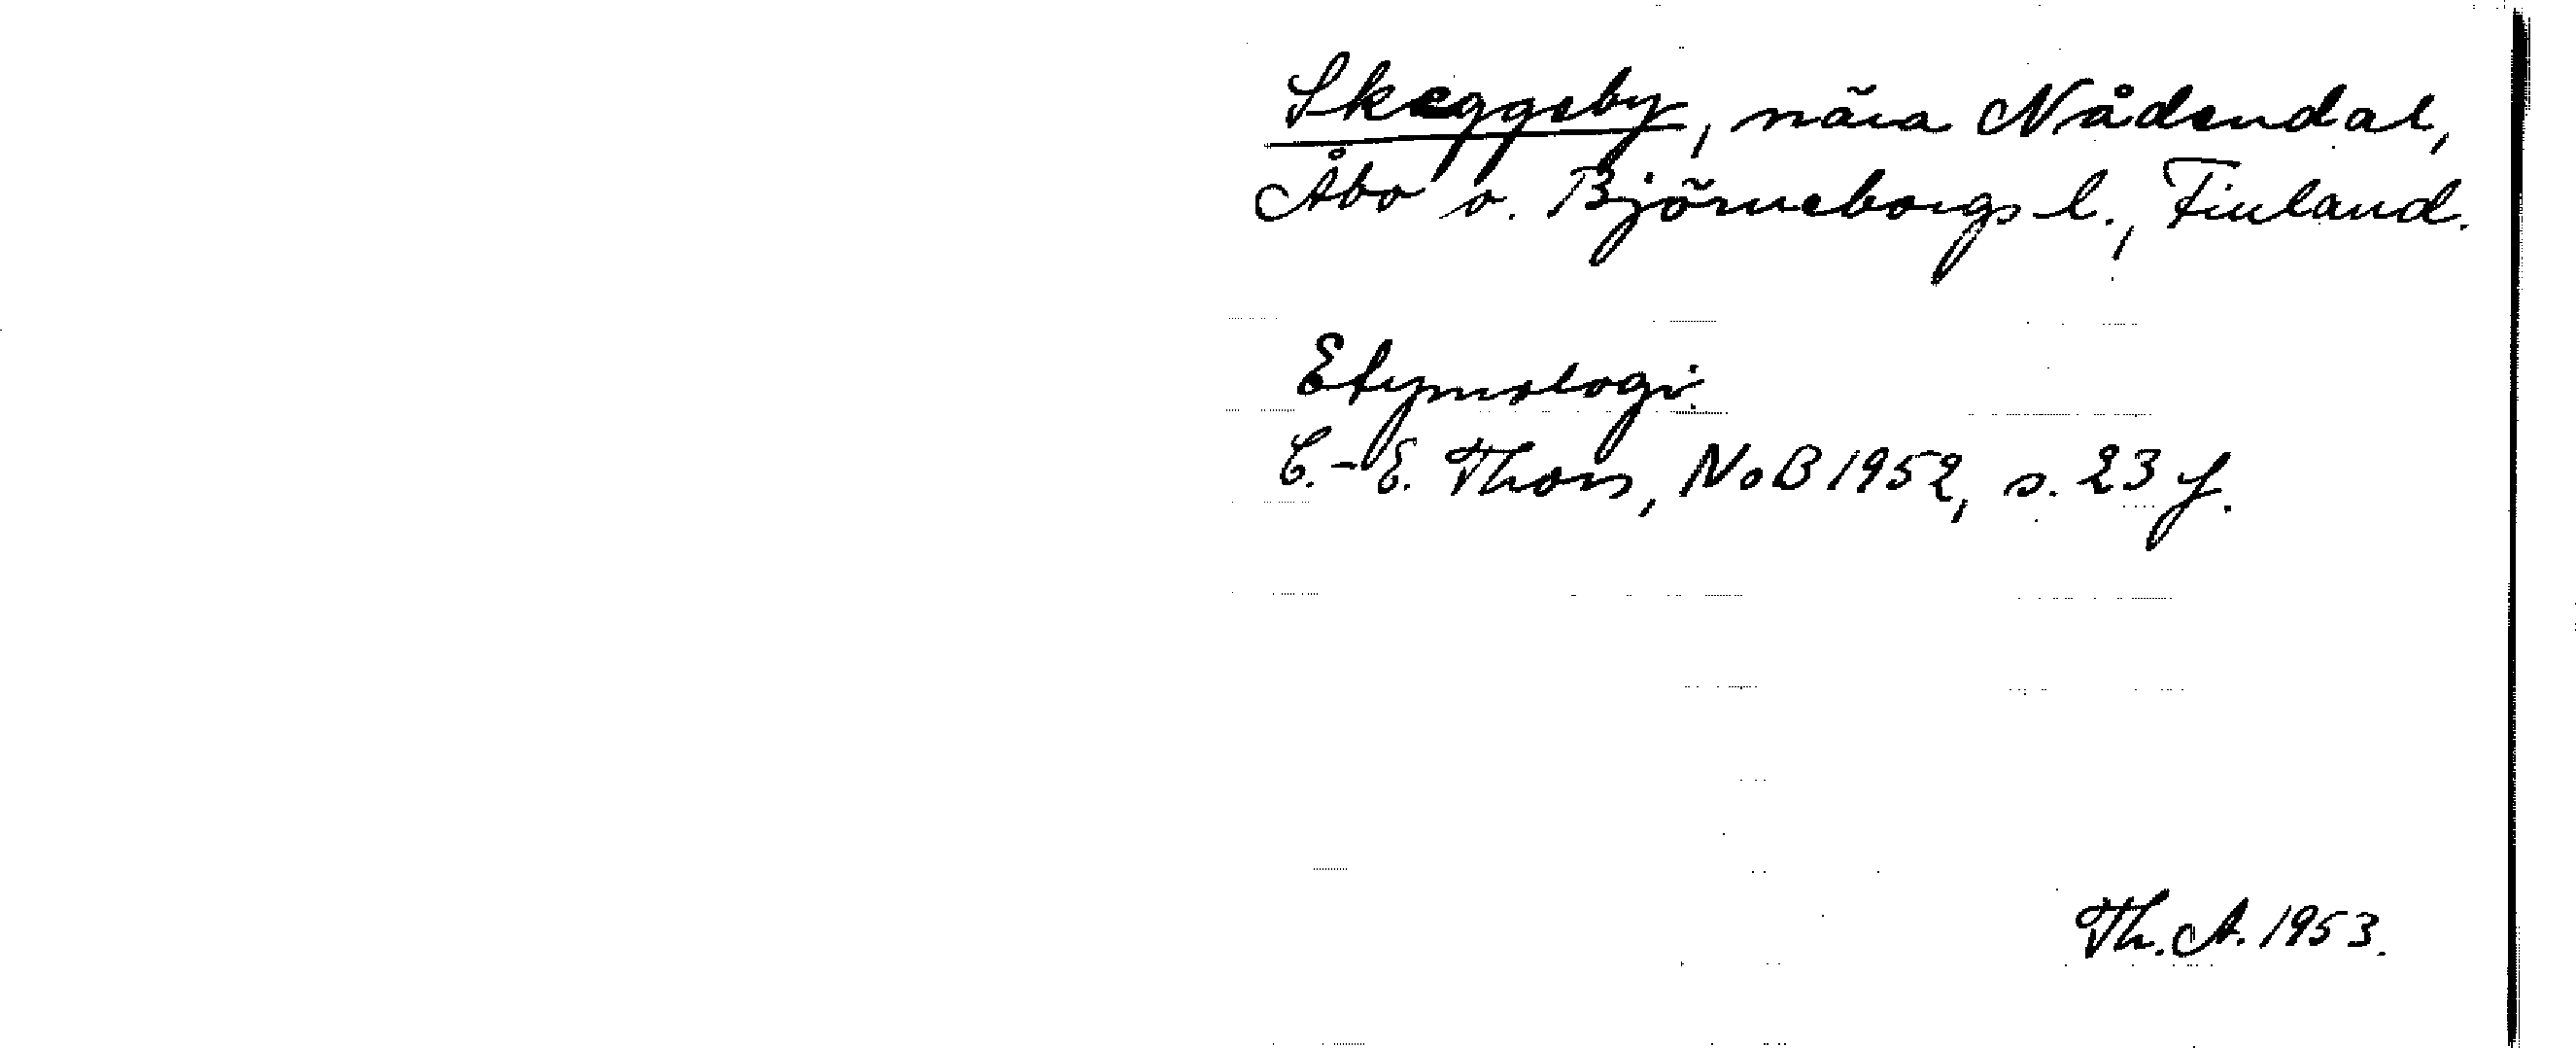 Skeggeby, nära Nådendal,
Åbo o. Björneborgs l., Finland.
Etymologi.
C.-E. Thors, NoB 1952, s. 23 f.
Th. A. 1953.